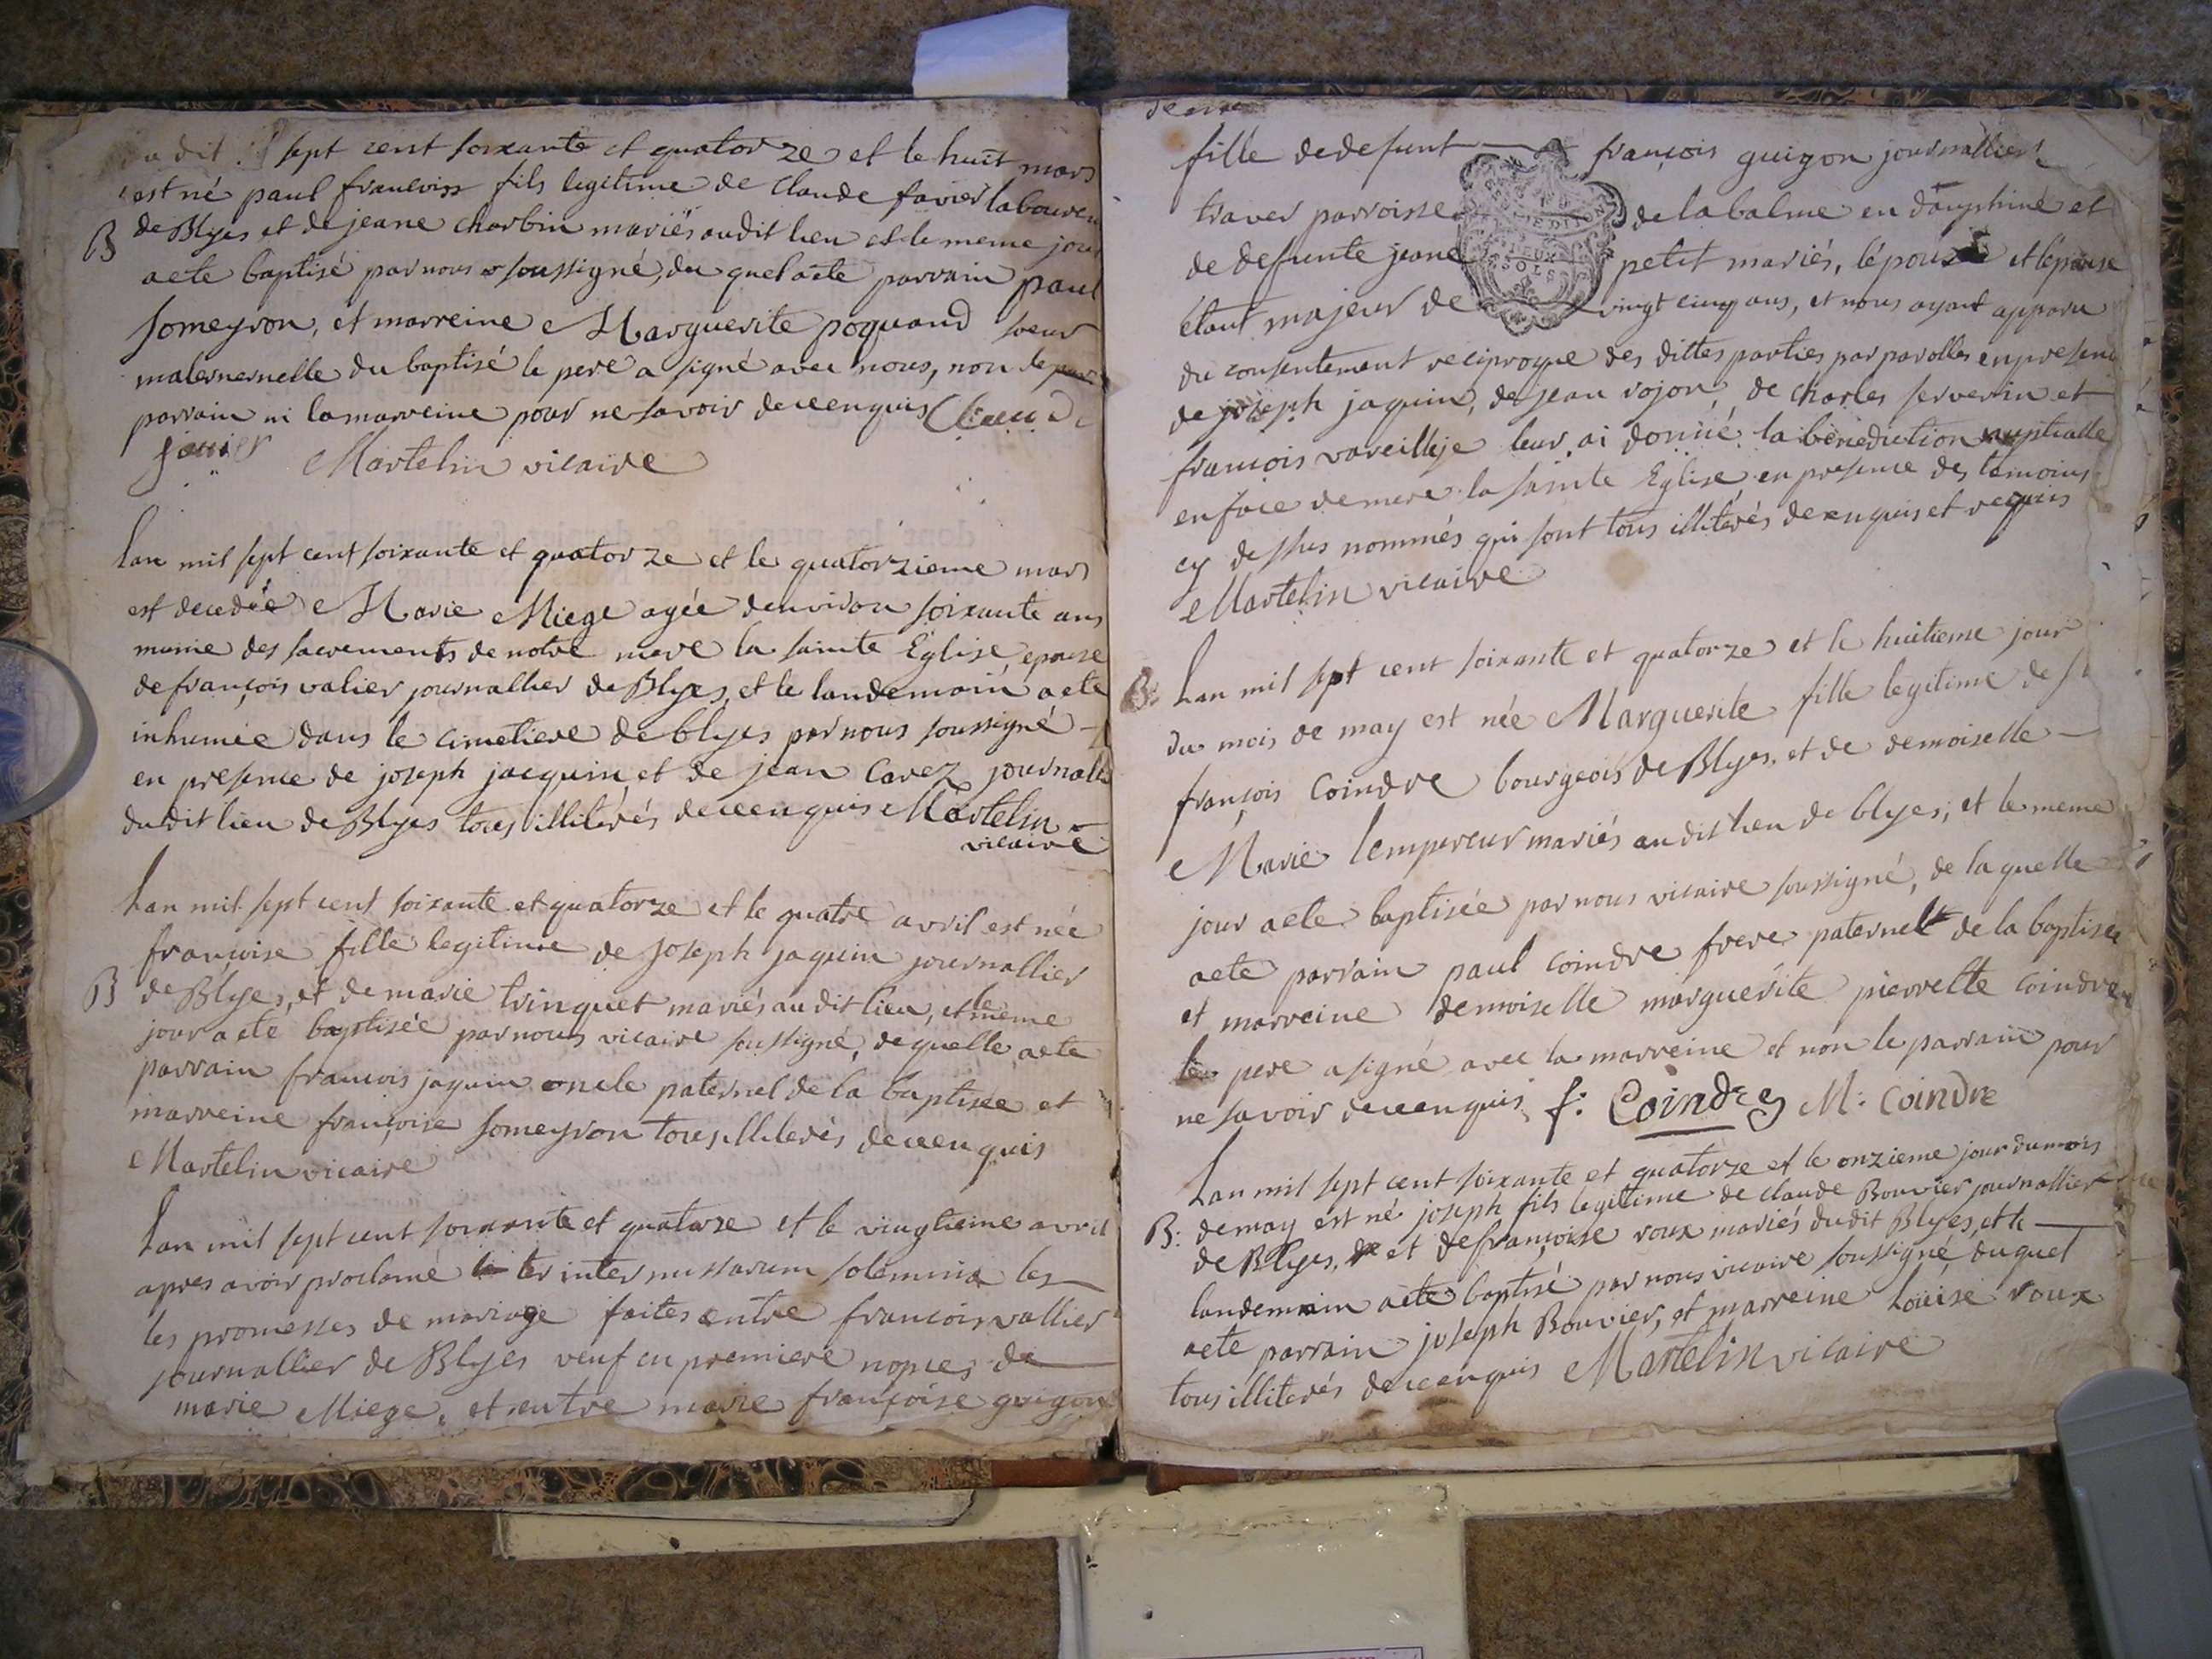 sept cent soixante et quatorze et le huit mars
est né paul francois fils legitime de claude favier laboureu
B de Blyes et de jeane charbin mariés audit lieu et le meme jour
aete baptisé par nous soussigné, du quel aete parrain paul
Someyron, et marreine Marguerite poquand soeur
maternernelle du baptisé le pere a signé avec nous, non le
parrain ni la marreine pour ne savoir de ce enquis
favier Martelin vicaire
Lan mil sept cent soixante et quatorze et le quatorzieme mars
est decedée Marie Miege agée denviron soixante ans
munie des sacrements de notre mere la sainte Eglise, epouse
de françois valier journallier de Blyes, et le landemain aete
inhumée dans le cimetiere de blyes par nous soussigné
en presence de joseph jacquin et de jean Carez journalli
dudit lieu de Blyes tous illiterés de ce enquis Martelin
vicaire
Lan mil sept cent soixante et quatorze et le quatre avril est née
françoise fille legitime de joseph jaquin journallier
B de Blyes, et de marie trinquet mariés au dit lieu, et le meme
jour a eté baptisée par nous vicaire soussigné, de quelle aete
parrain francois jaquin oncle paternel de la baptisée et
marreine françoise Someyron tous illiterés de ce enquis
Martelin vicaire
Lan mil sept cent soixante et quatorze et le vingtieme avril
apres avoir proclamé ter inter missarum solemnia les
les promesses de mariage faites entre francois vallier
journallier de Blyes veuf en premiere nopces de
marie Miege, et entre marie françoise guigon
fille de defunt françois guigon journallier
traver parroisse de la balme en dauphiné et
de defunte jeane petit mariés, lépoux et lépouse
étant majeur de vingt cinq ans, et nous ayant apparu
du consentement reciproque des dittes parties par parolles en presence
de joseph jaquin, de jean rojon, de charles serverin et
francois vareillje leur ai donné la benediction nuptialle
en face de mere la sainte Eglise en presence des temoins
cy dessus nommés qui sont tous illiterés de enquis et requis
Martelin vicaire
B: Lan mil sept cent soixante et quatorze et le huitieme jour
du mois de may est née Marguerite fille legitime de
françois Coindre bourgeois de Blyes, et de demoiselle
Marie Lempereur mariés au dit lieu de blyes, et le meme
jour aete baptisée par nous vicaire soussigné, de laquelle
aete parrain paul coindre frere paternel de la baptisée
et marreine demoiselle marguerite pierrette coindre
le pere a signé avec la marreine et non le parrain pour
ne savoir de ce enquis f: Coindre M: Coindre
Lan mil sept cent soixante et quatorze et le onzieme jour du mois
B: de may est né joseph fils legitime de claude Bouvier journallier
de Blyes, et de françoise roux mariés dudit Blyes, et le
landemain aete baptisé par nous vicaire soussigné, duquel
aete parrain joseph Bouvier, et marreine Loüise roux
tous illiterés de ce enquis Martelin vicaire